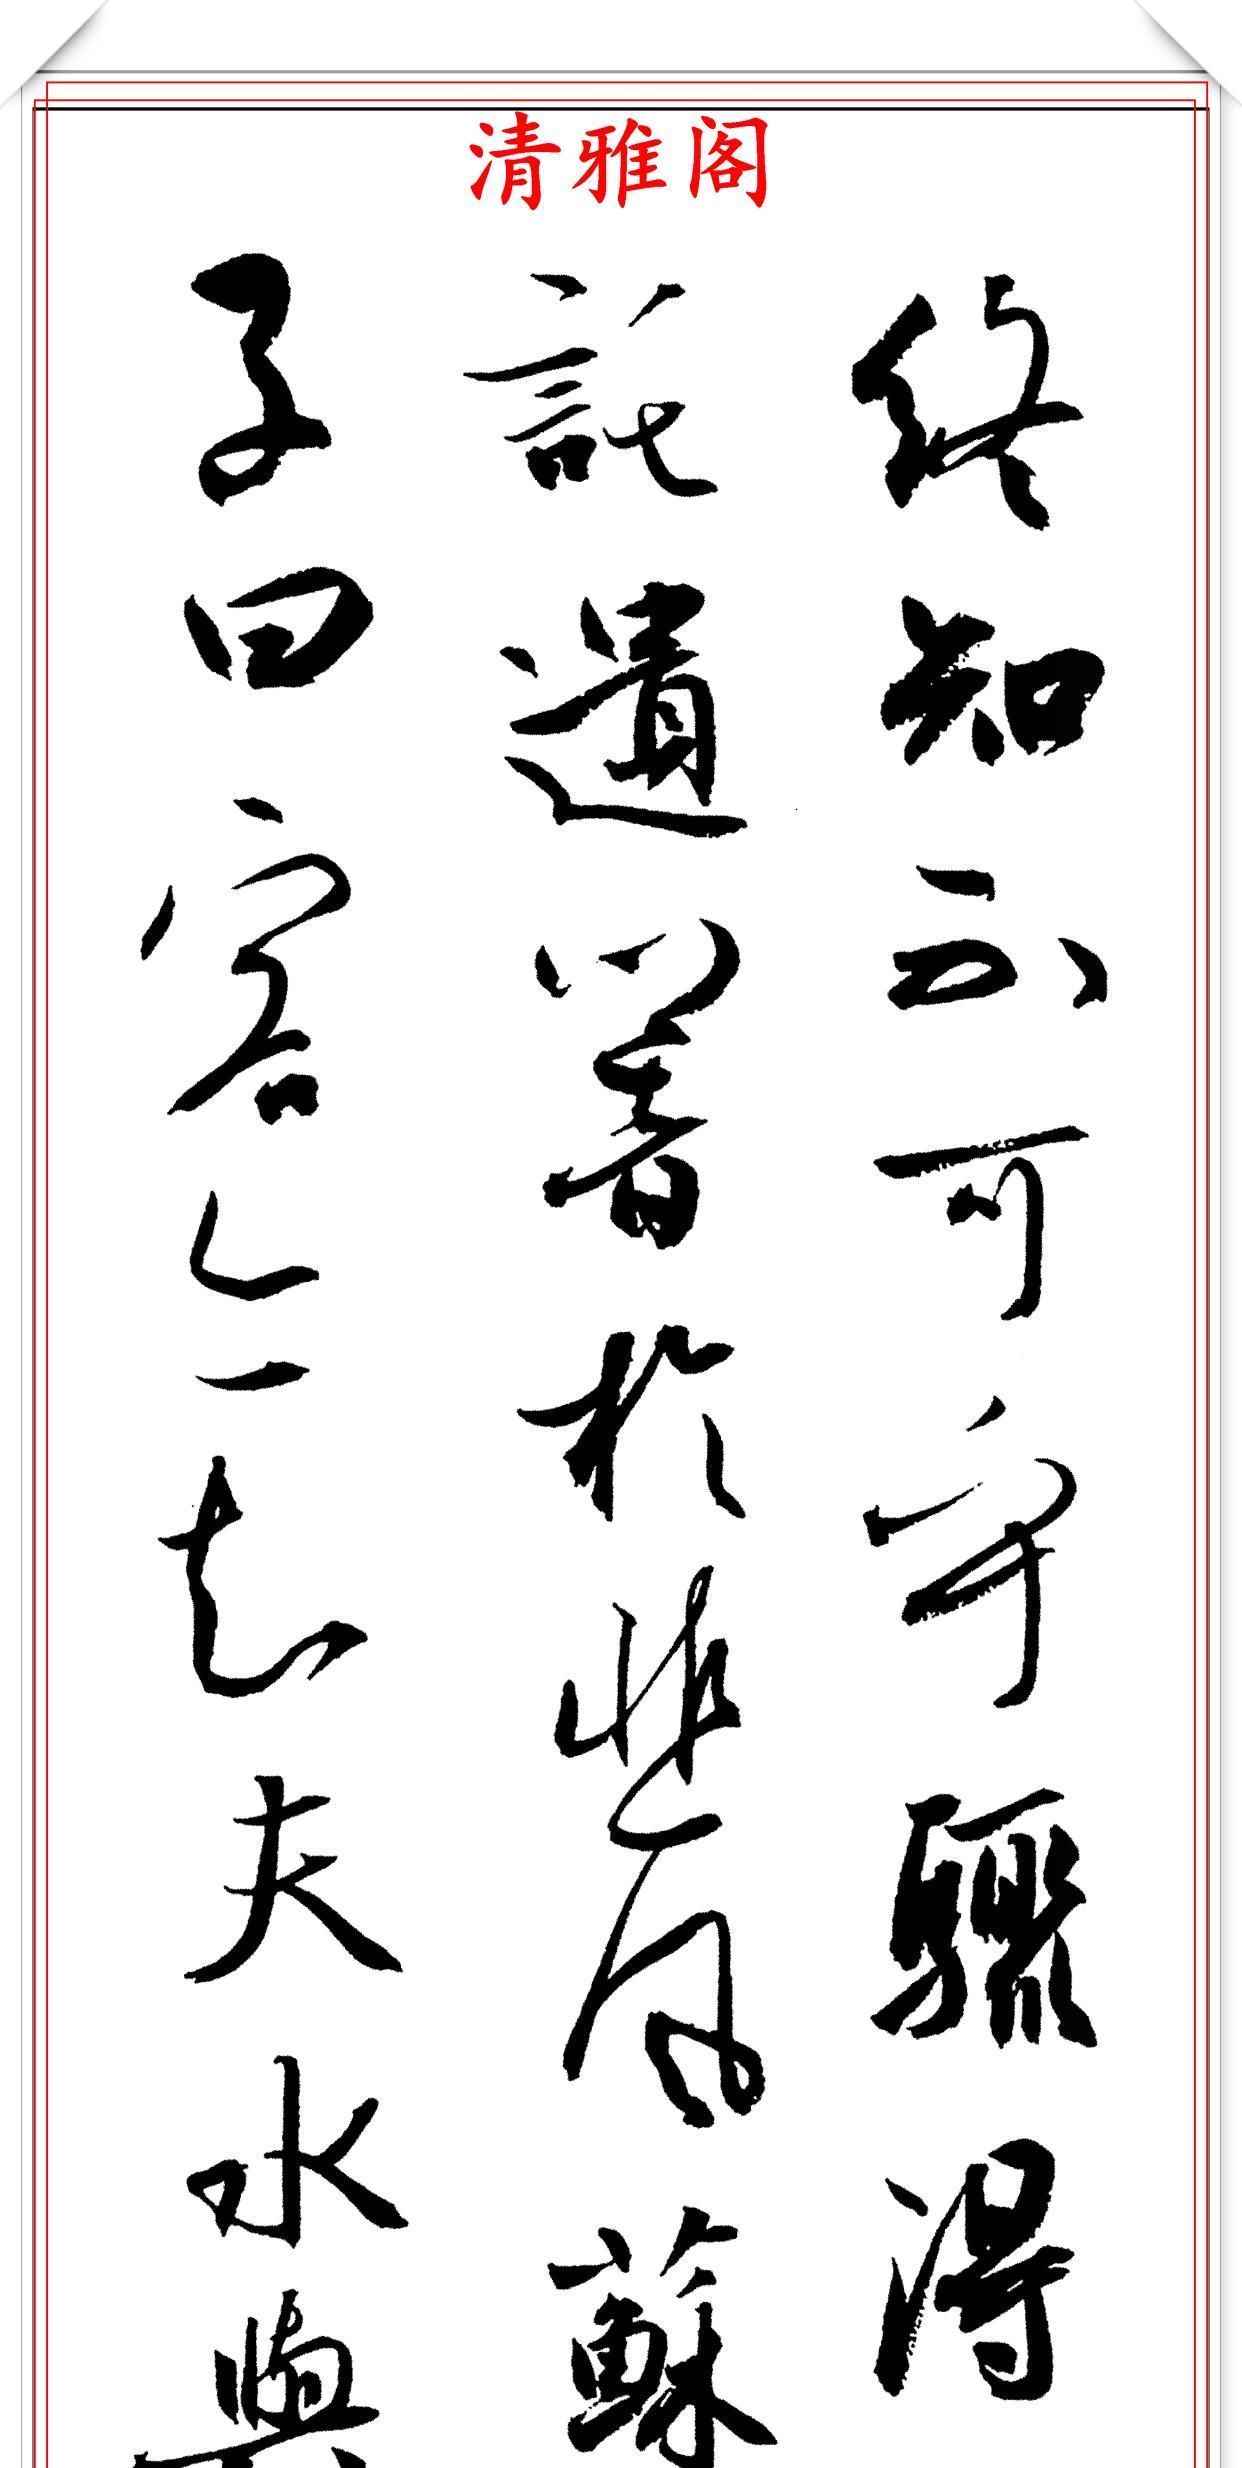 清雅阁
終知不可乎驟得
託遺響於悲風蘇
子曰客亦知夫水與